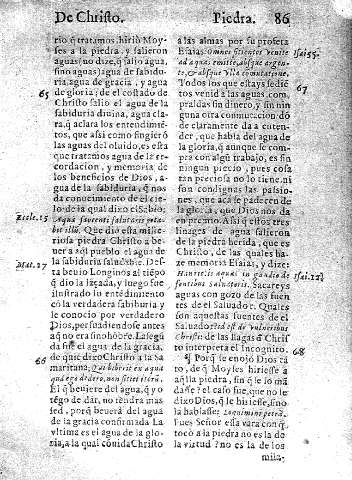 De Christo. Piedra. 86
rio q̃ tratamos, hirio Moy-
ses a la piedra, y salieron
aguas (no dize, q̃ salio agua,
sino aguas) agua de sabidu-
ria, agua de gracia, y agua
65
de gloria; de el costado de
Christo salio el agua de la
sabiduria diuina, agua cla-
ra, q̃ aclara los entendimiẽ-
tos, que assi como fingierõ
las aguas del oluido, es esta
que tratamos agua de la re-
cordacion, y memoria de
los beneficios de Dios, a-
gua de la sabiduria, q̃ nos
da conocimiento de el cie-
lo: de la qual dixo el Sabio;
Eccle. 15
Aqua sapientiæ salutaris pota-
bit illũ. Que dio esta miste-
riosa piedra Christo a be-
uer a aq̃l pueblo el agua de
la sabiduria saludable. Des-
Mat. 27
ta beuio Longinos al tiẽpo
q̃ dio la lãçada, y luego fue
ilustrado su entendimiento
cõ la verdadera sabiduria y
le conocio por verdadero
Dios, persuadiendose antes
aq̃ no era sino hõbre. La segũ
da fue el agua de la gracia,
66
de que dixo Christo a la Sa
maritana; Qui biberit ex aqua
quã ego dedero, non sitiet iterũ.
El q̃ beuiere del agua, q̃ yo
tẽgo de dar, no tendrà mas
sed, porq̃ beuerà del agua
de la gracia confirmada La
vltima es el agua de la glo-
ria, a la qual cõuida Christo
a las almas por su profeta
Esaias. Omnes sitientes venite
Isai 55.
ad aquas emite, absque argen-
to, & absque vlla comutatione.
Todos los que estays sediẽ
67
tos venid a las aguas, com-
praldas sin dinero, y sin nin
guna otra conmutacion: dõ
de claramente da a enten-
der, que habla del agua de
la gloria, q̃ aunque se com-
pra con algũ trabajo, es sin
ningun precio, pues cosa
tan preciosa no lo tiene, ni
son condignas las pasio-
nes, que acá se padecen de
la gloria, que Dios nos da
en premio. Assi q̃ estos tres
linages de agua salieron
de la piedra herida, que es
Christo, de las quales ha-
ze memoria Esaias, y dize:
Haurietis aquas in gaudio de
Isai. 12.
fontibus Saluatoris. Sacareys
aguas con gozo de las fuen
tes del Saluador. Quales
son aquestas fuentes de el
Saluador? id est de vulneribus
Christi: de las llagas de Christo
interpreta el Incognito.
68
¶ Porq̃ se enojó Dios tã
to, de q̃ Moyses hiriesse a
aq̃lla piedra, sin q̃ le lo mã
dasse? el caso fue, que no le
dixo Dios, q̃ le hiriesse, sino
la hablasse; Loquimini petræ.
Pues Señor esta vara con q̃
tocò a la piedra no es la de
la virtud? no es la de los
mila-